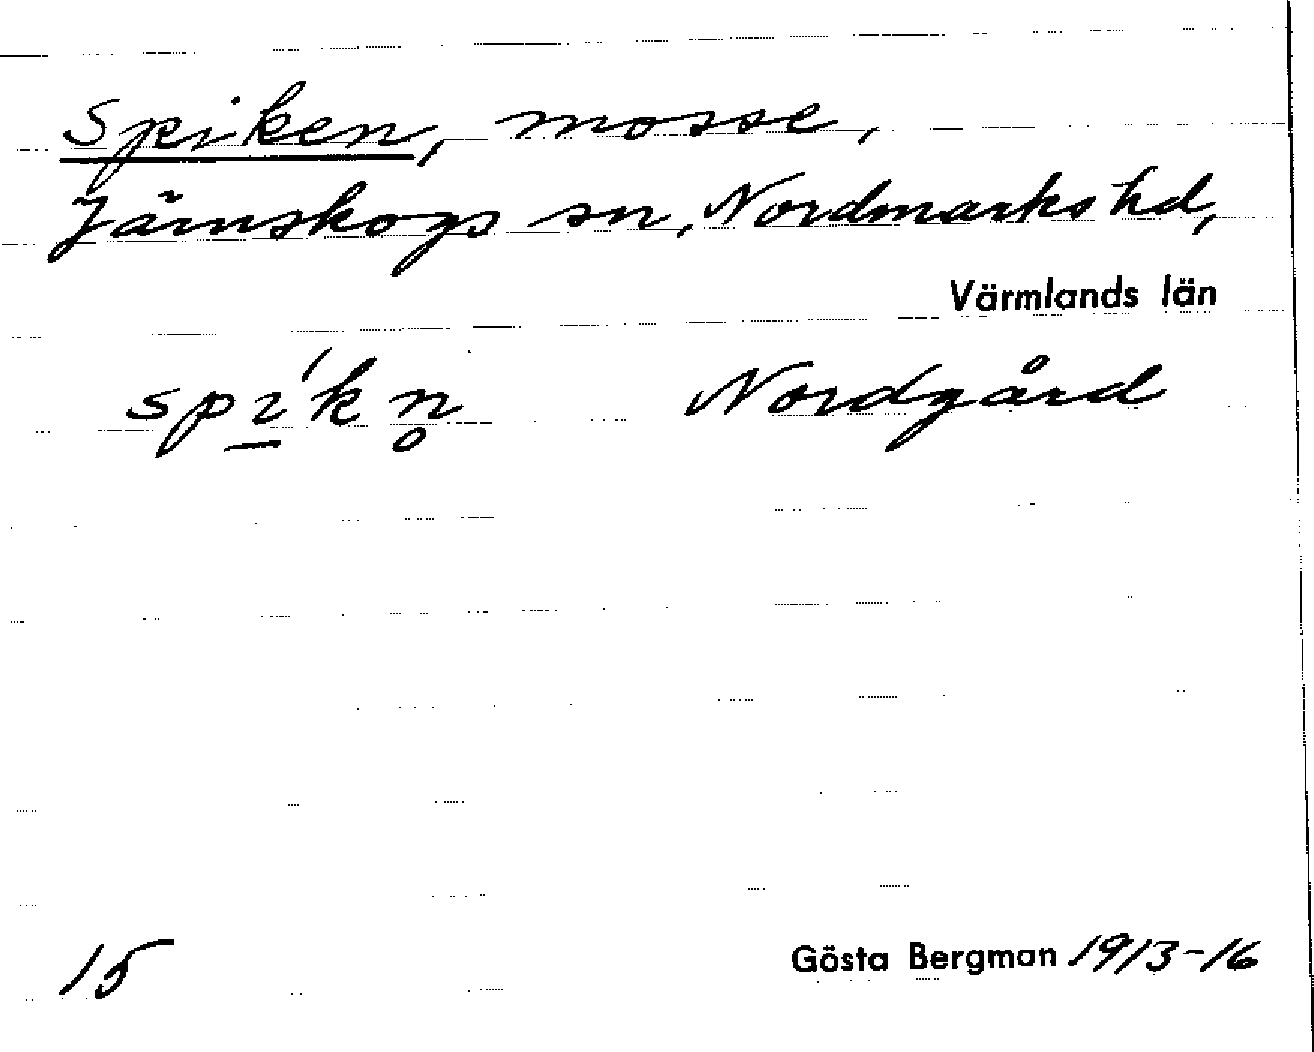 Spiken, mosse,
Järnskogs sn, Nordmarks hd,
Värmlands län
spi̲´kn̥ Nordgård
15 Gösta Bergman 1913-16